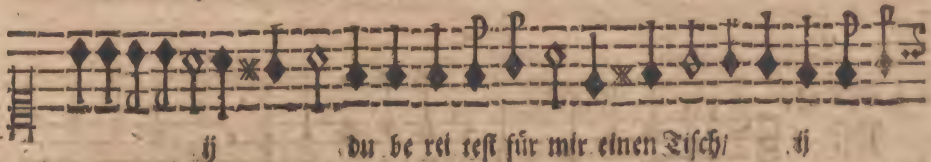 ij du be rei test für mir einen Tisch/ ij